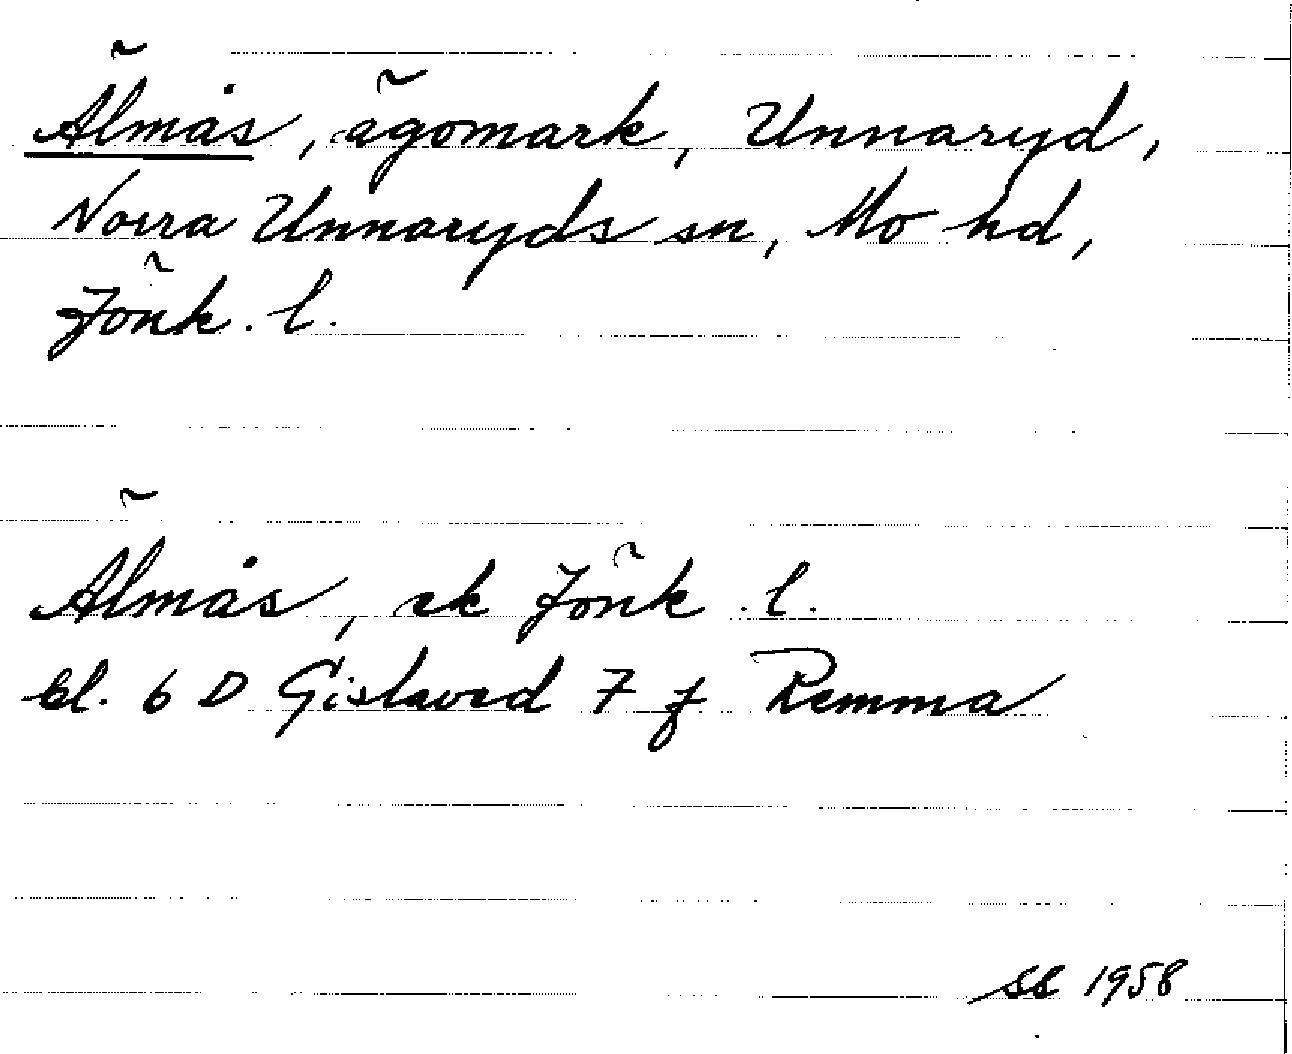 Älmås, ägomark, Unnaryd,
Norra Unnaryds sn, Mo hd,
Jönk. l.
Älmås, ek Jönk. l.
bl. 6 D Gislaved 7 f Remma
SS 1958